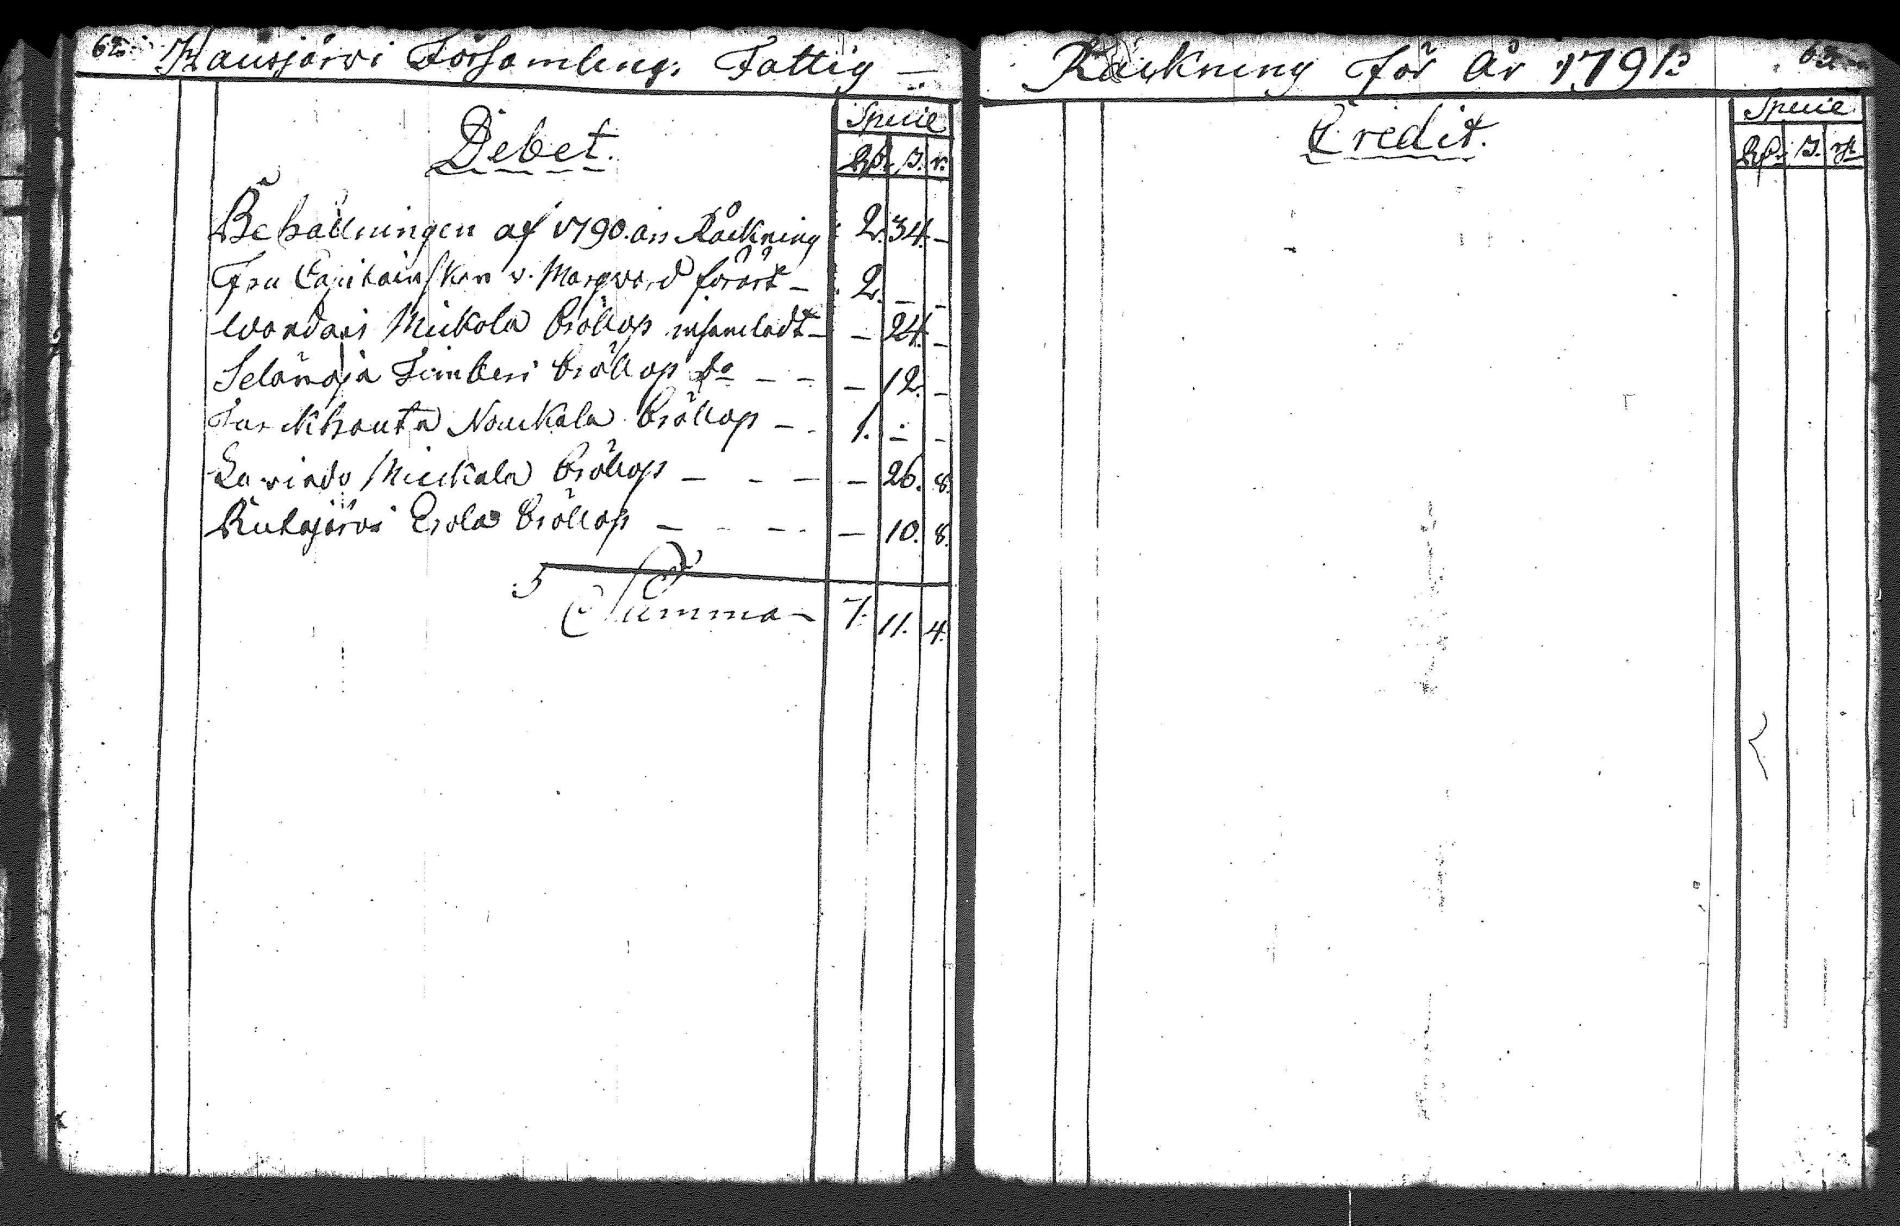 62. Hausjärvi Församling: Fattig —
Debet.
Specie
Rd. s. r.
Behållningen af 1790. års Räkning 2. 34. –
Fru Capitainskan v. Marqvard förärt – 2. – –
Wondais Mickola Bröllop insamladt – – 24. –
Selänoja Simberi Bröllop do – – – 12. –
Turckhauta Nouckala Bröllop – – 1. – –
Lavindo Mickala Bröllop – – – – 26. 8.
Rutajärvi Erola Bröllop – – – – – 10. 8.
Summa – 7. 11. 4.
Räkning för År 1791 63.
Credit.
Specie
Rd. s. rst